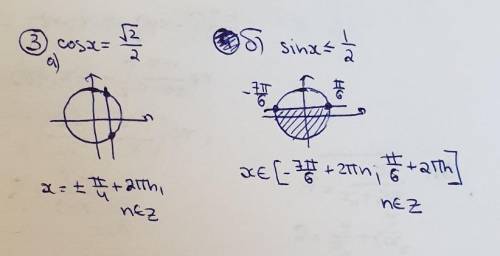 ③ cosx = √2/2
а)
x = ± π/4 + 2πn,
n∈Z
б) sinx ≤ 1/2
-7π/6 π/6
x∈[-7π/6 + 2πn; π/6 + 2πn]
n∈Z